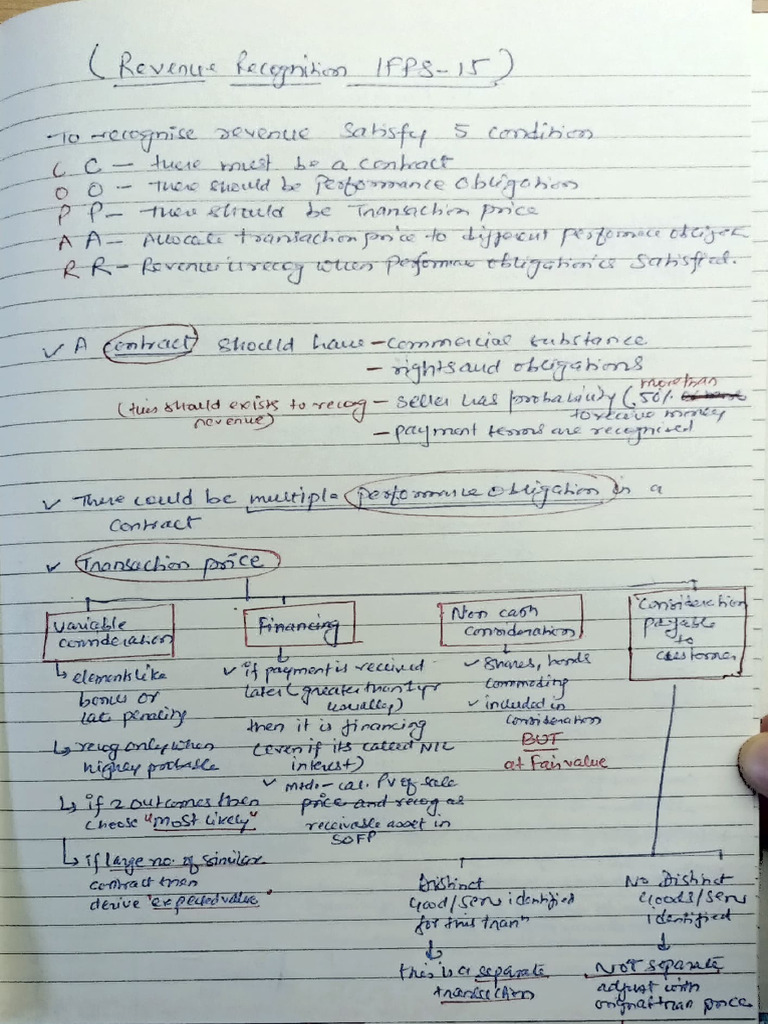 (Revenue Recognition IFPS-15)
To recognise revenue satisfy 5 condition
C C - there must be a contract
O O - There should be Performance Obligation
P P - there should be Transaction price
A A - Allocate transaction price to different performnce obligatn
R R - Revenue is recog when performnc obligation is satisfied.
✓ A contract should have - commercial substance
- rights and obligations
(this should exists to recog - seller has probability (more than 50%
revenue) to receive money
- payment terms are recognized
✓ There could be multiple performance obligation in a
contract
✓ Transaction price
Variable
consideration
↳ element like
bonus or
late penality
↳ recog only when
highly probable
↳ if 2 outcomes then
choose "most likely"
↳ if large no. of similar
contract then
derive "expected value"
Financing
✓ if payment is received
later (greater than 1 yr
usually)
then it is financing
(even if its called NIL
interest)
✓ mtd:- cal. PV of sale
price and recog as
receivable asset in
SOFP
Non cash
consideration
✓ shares, bonds
commodity
✓ included in
consideration
BUT
at Fair value
Consideration
payable
to
customer
Distinct
Good/serv identified
for this tranⁿ
↓
this is a separate
transaction
No Distinct
Goods/serv
identified
↓
Not separate
adjust with
original tran price